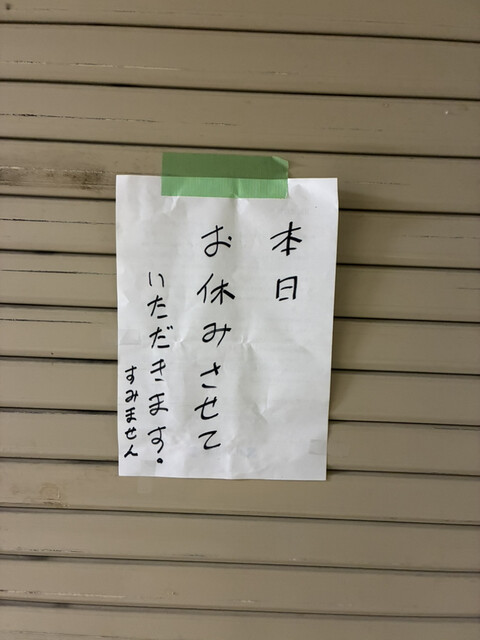 本日
お休みさせて
いただきます。
すみません